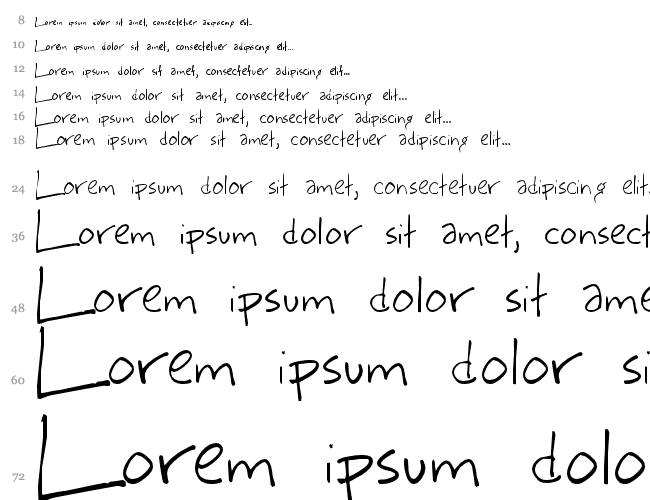 8 Lorem ipsum dolor sit amet, consectetuer adipiscing elit...
10 Lorem ipsum dolor sit amet, consectetuer adipiscing elit...
12 Lorem ipsum dolor sit amet, consectetuer adipiscing elit...
14 Lorem ipsum dolor sit amet, consectetuer adipiscing elit...
16 Lorem ipsum dolor sit amet, consectetuer adipiscing elit...
18 Lorem ipsum dolor sit amet, consectetuer adipiscing elit...
24 Lorem ipsum dolor sit amet, consectetuer adipiscing elit.
36 Lorem ipsum dolor sit amet, consect
48 Lorem ipsum dolor sit ame
60 Lorem ipsum dolor si
72 Lorem ipsum dolo